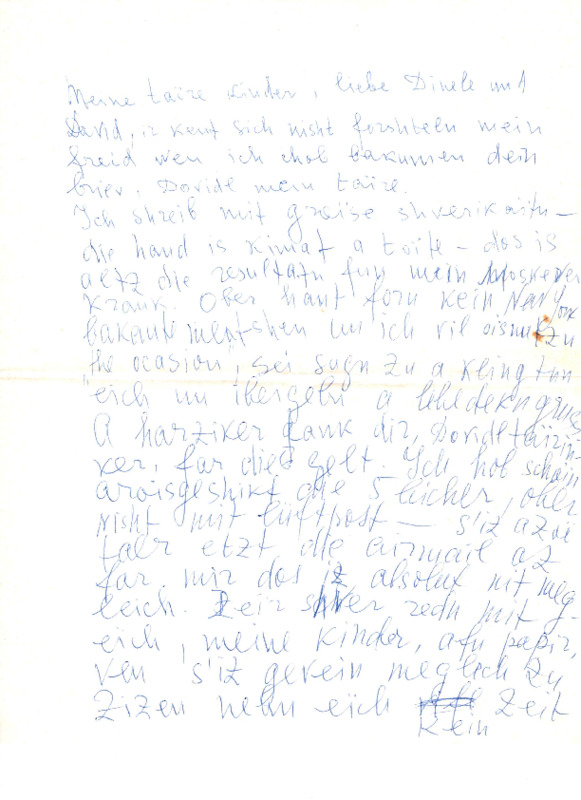 Meine taïre kinder, liebe Dinele und
David, ir kent sich nisht forshteln mein
freid wen ich chob bakumen dein
briev. Dovidl mein taire.
Ich shreib mit groise shverikaitn —
die hand is kimat a toite — dos is
aetz die resultatn fun mein Moskever
krank. Ober hant forn kein Nav York
bakante mentshen un ich vil oisnutzn
the ocasion, sei sugn zu a klingtun
eich un ibergebn a lebedekn grus
A harziker dank dir, Dovidl taïrin-
ker, far dies gelt. Ich hob schoin
aroisgeshikt die 5 bicher, ober
nisht mit luftpost — s'iz azoi
taer etzt die airmail az
far mir dos iz absolut nit meg
leich. Zeir shver redn mit
eich, meine kinder, afn papir,
ven s'iz geven meglich zu
zizen nebn eich Zeit
kein